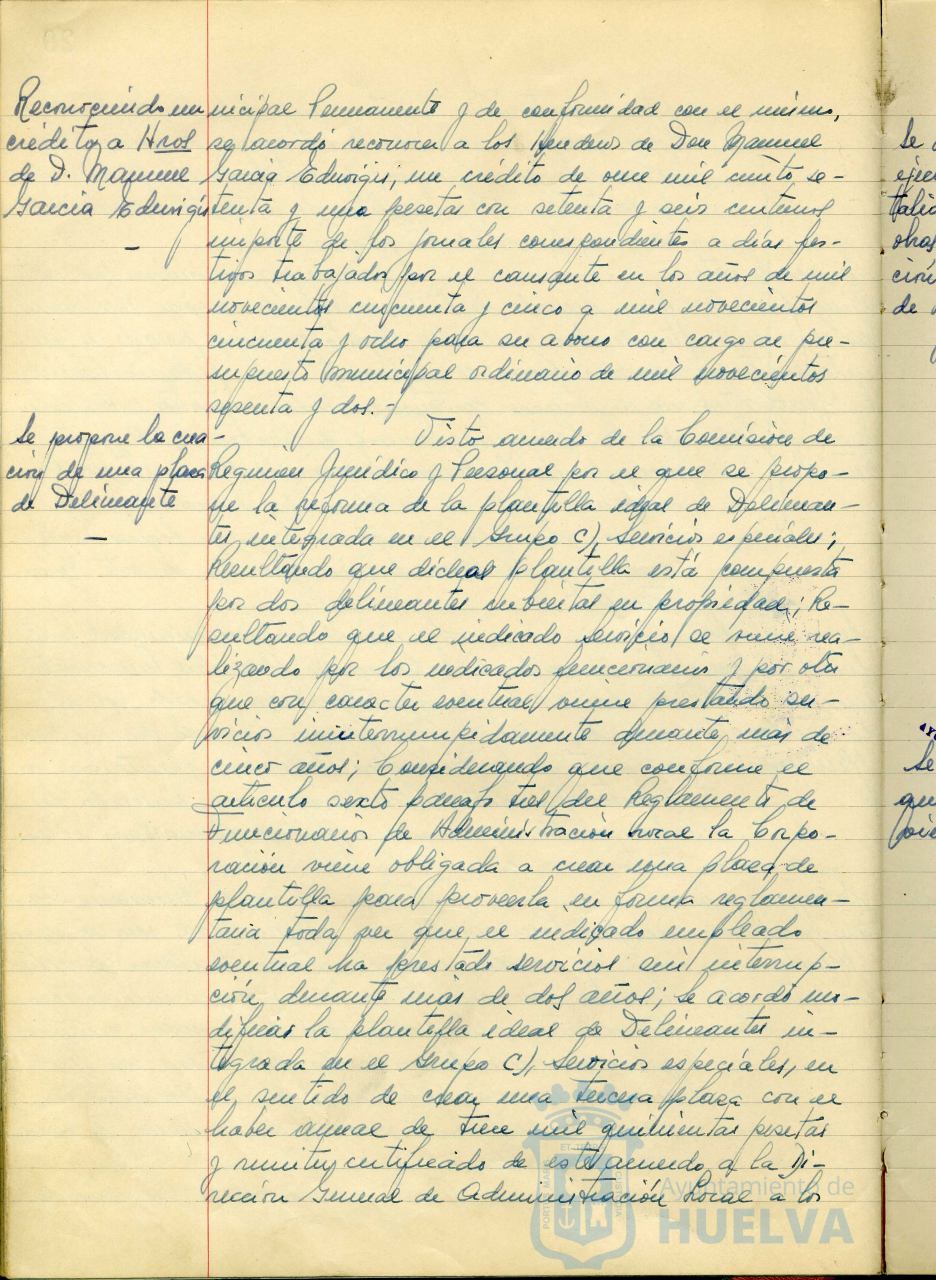 Reconociendo un
crédito a Hros
de D. Manuel
Garcia Eduvigis
—
nicipal Permanente y de conformidad con el mismo,
se acordó reconocer a los Herederos de Don Manuel
Garcia Eduvigis, un crédito de once mil ciento se-
tenta y una pesetas con setenta y seis centimos
importe de los jornales correspondientes a días fes-
tivos trabajados por el causante en los años de mil
novecientos cincuenta y cinco a mil novecientos
cincuenta y ocho para su abono con cargo al pre-
supuesto municipal ordinario de mil novecientos
sesenta y dos.-
Se propone la crea-
ción de una plaza
de Delineante
—
Visto acuerdo de la Comisión de
Regimen Jurídico y Personal por el que se propo-
ne la reforma de la plantilla ideal de Delinean-
tes integrada en el Grupo C), Servicios especiales;
Resultando que dichas plantilla está compuesta
por dos delineantes cubiertas en propiedad; Re-
sultando que el indicado servicio se viene rea-
lizando por los indicados funcionarios y por otro
que con caracter eventual viene prestando ser-
vicios ininterrumpidamente durante más de
cinco años; Considerando que conforme el
articulo sexto parrafo tres del Reglamento de
Funcionarios de Administración Local la Corpo-
ración viene obligada a crear una plaza de
plantilla para proveerla en forma reglamen-
taria toda vez que el indicado empleado
eventual ha prestado servicios sin interrup-
ción durante más de dos años; se acordó mo-
dificar la plantilla ideal de Delineantes in-
tegrada en el Grupo C), Servicios especiales, en
el sentido de crear una tercera plaza con el
haber anual de trece mil quinientas pesetas
y remitir certificado de este acuerdo a la Di-
rección General de Administración Local a los
Ayuntamiento de
HUELVA
Se
obras
ción
de
Se